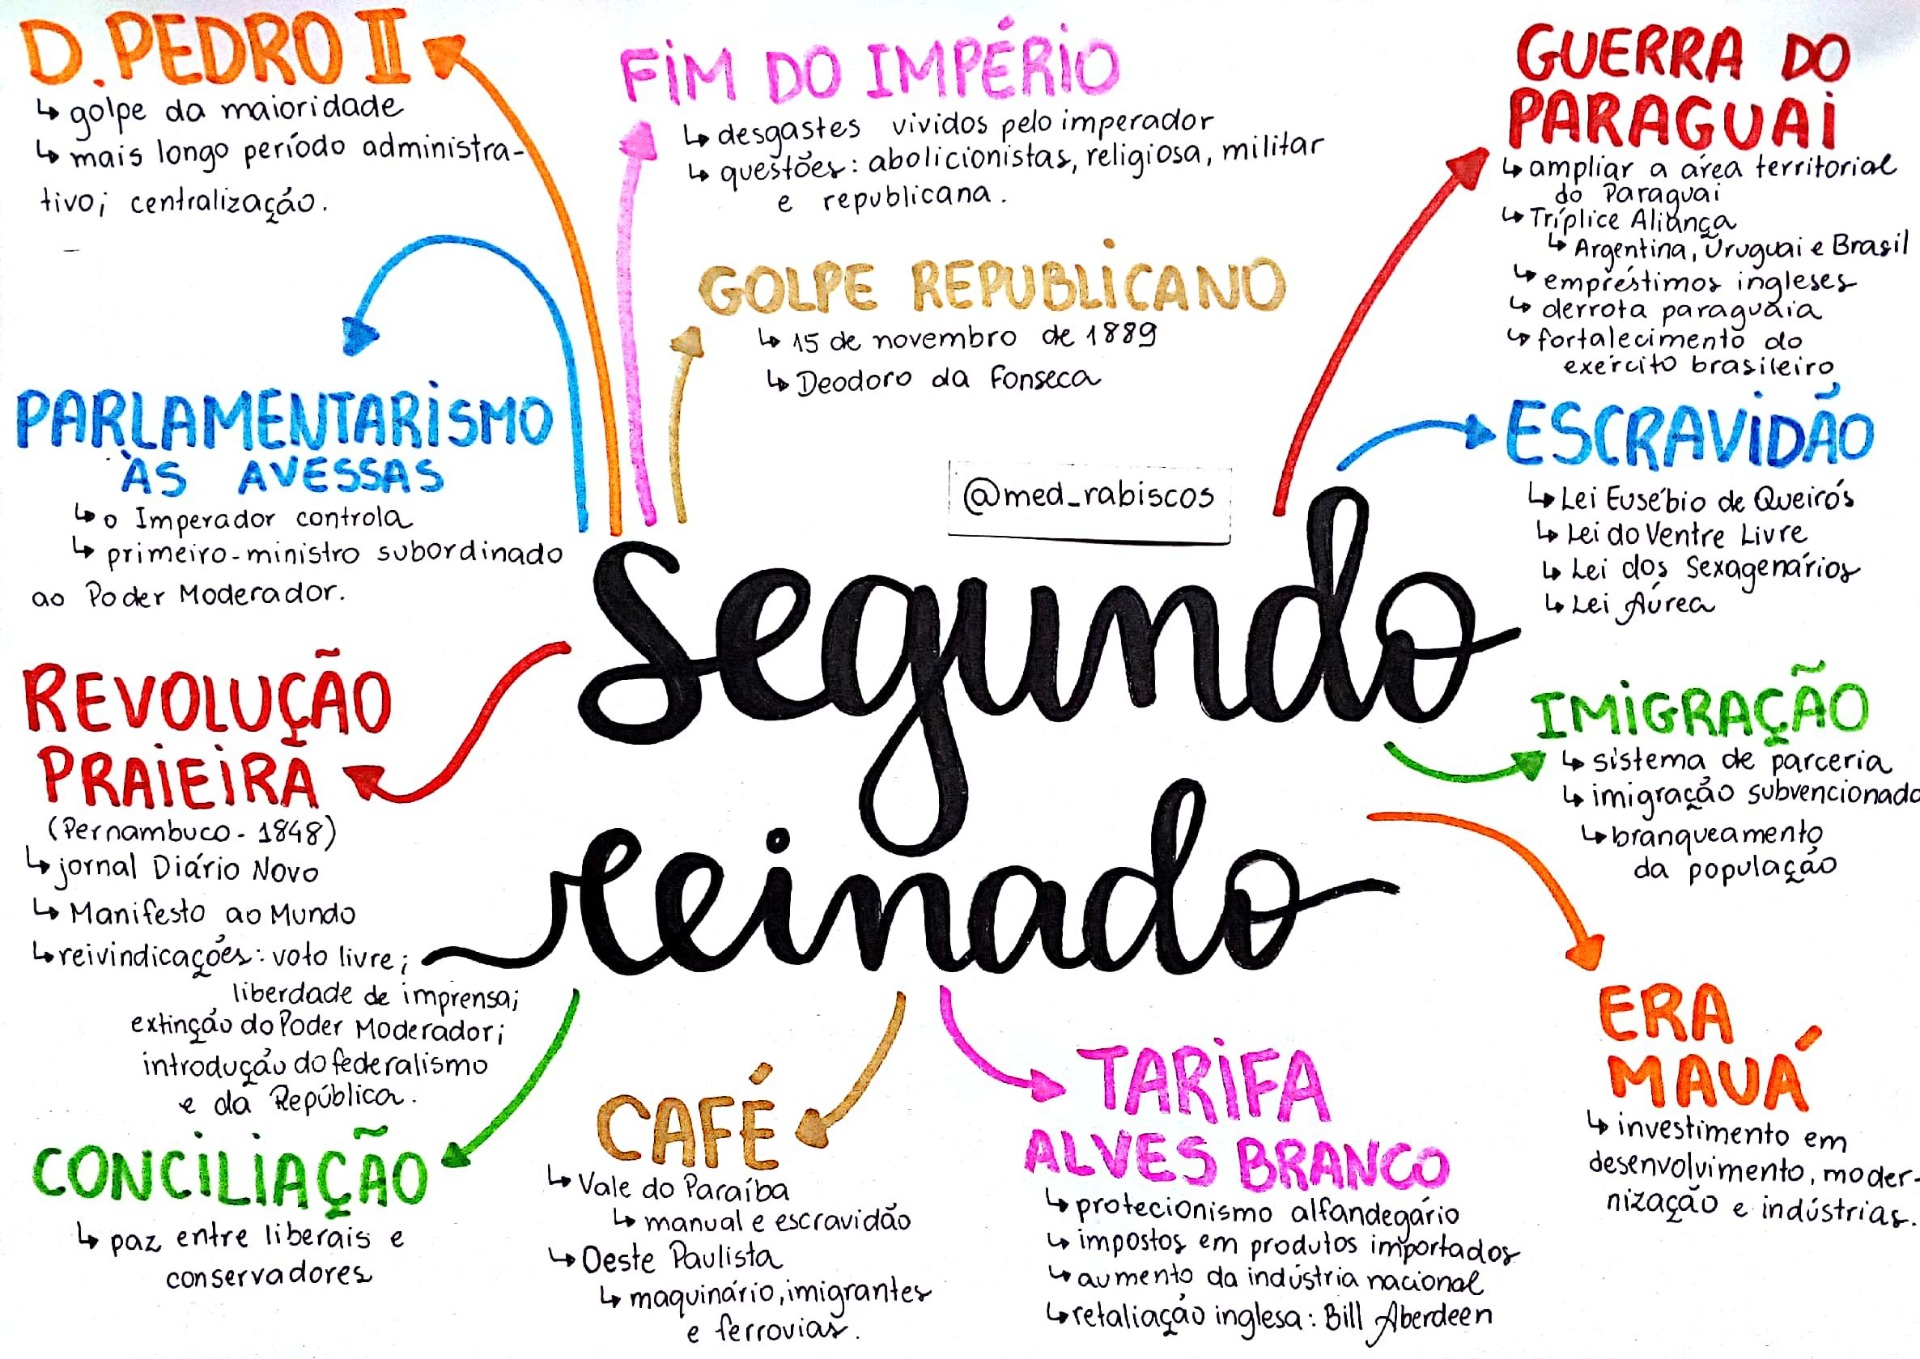 D. PEDRO II
↳ golpe da maioridade
↳ mais longo período administra-
tivo; centralização.
FIM DO IMPÉRIO
↳ desgastes vividos pelo imperador
↳ questões: abolicionistas, religiosa, militar
e republicana.
GOLPE REPUBLICANO
↳ 15 de novembro de 1889
↳ Deodoro da Fonseca
GUERRA DO
PARAGUAI
↳ ampliar a área territorial
do Paraguai
↳ Tríplice Aliança
↳ Argentina, Uruguai e Brasil
↳ empréstimos ingleses
↳ derrota paraguaia
↳ fortalecimento do
exército brasileiro
PARLAMENTARISMO
ÀS AVESSAS
↳ o Imperador controla
↳ primeiro-ministro subordinado
ao Poder Moderador.
@med_rabiscos
ESCRAVIDÃO
↳ Lei Eusébio de Queirós
↳ Lei do Ventre Livre
↳ Lei dos Sexagenários
↳ Lei Áurea
segundo
reinado
REVOLUÇÃO
PRAIEIRA
(Pernambuco - 1848)
↳ jornal Diário Novo
↳ Manifesto ao Mundo
↳ reivindicações: voto livre;
liberdade de imprensa;
extinção do Poder Moderador;
introdução do federalismo
e da República.
IMIGRAÇÃO
↳ sistema de parceria
↳ imigração subvencionado
↳ branqueamento
da população
CONCILIAÇÃO
↳ paz entre liberais e
conservadores
CAFÉ
↳ Vale do Paraíba
↳ manual e escravidão
↳ Oeste Paulista
↳ maquinário, imigrantes
e ferrovias.
TARIFA
ALVES BRANCO
↳ protecionismo alfandegário
↳ impostos em produtos importados
↳ aumento da indústria nacional
↳ retaliação inglesa: Bill Aberdeen
ERA
MAUÁ
↳ investimento em
desenvolvimento, moder-
nização e indústrias.